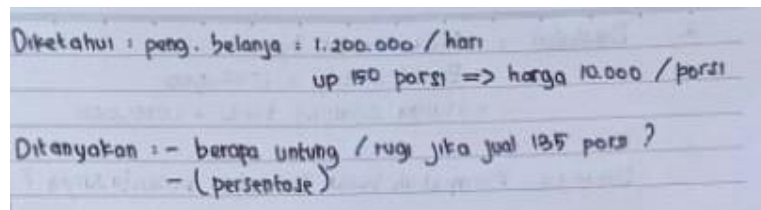 Diketahui : peng. belanja : 1.200.000 / hari
up 150 porsi => harga 10.000 / porsi
Ditanyakan : - berapa untung / rugi jika jual 135 porsi ?
- (persentase)